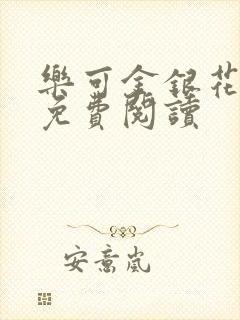 樂可金銀花
免費閱讀
安意嵐